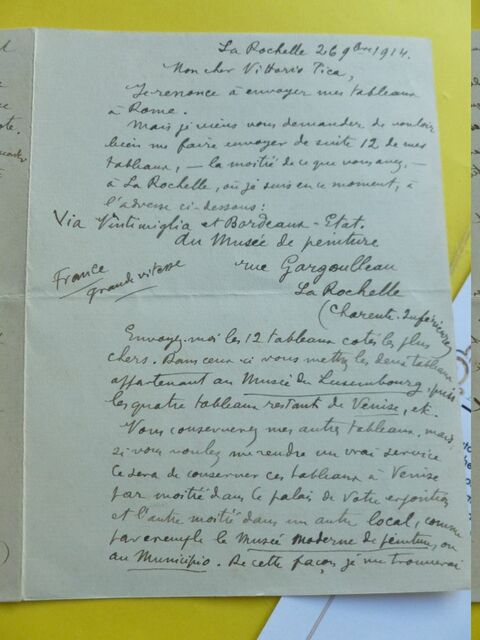 La Rochelle 26 9bre 1914.
Mon cher Vittorio Pica,
Je renonce à envoyer mes tableaux
à Rome.
Mais je viens vous demander de vouloir
bien me faire envoyer de suite 12 de mes
tableaux, — la moitié de ce que vous avez, —
à La Rochelle, où je suis en ce moment, à
l'adresse ci-dessous :
Via Vintimiglia et Bordeaux-Etat.
au Musée de peinture
France
grande vitesse
rue Gargoulleau
La Rochelle
(Charente-Inférieure
Envoyez-moi les 12 tableaux cotés les plus
chers. Dans ceux-ci vous mettez les deux tableaux
appartenant au Musée du Luxembourg, puis
les quatre tableaux restant de Venise, etc.
Vous conserverez mes autres tableaux, mais,
si vous voulez me rendre un vrai service
ce sera de conserver ces tableaux à Venise
par moitié dans le palais de votre exposition
et l'autre moitié dans un autre local, comme
par exemple le Musée moderne de peinture, ou
au Municipio. De cette façon je me trouverai